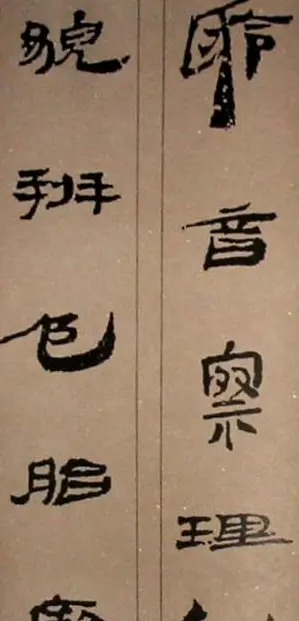 聆音察理
貌辨色貽